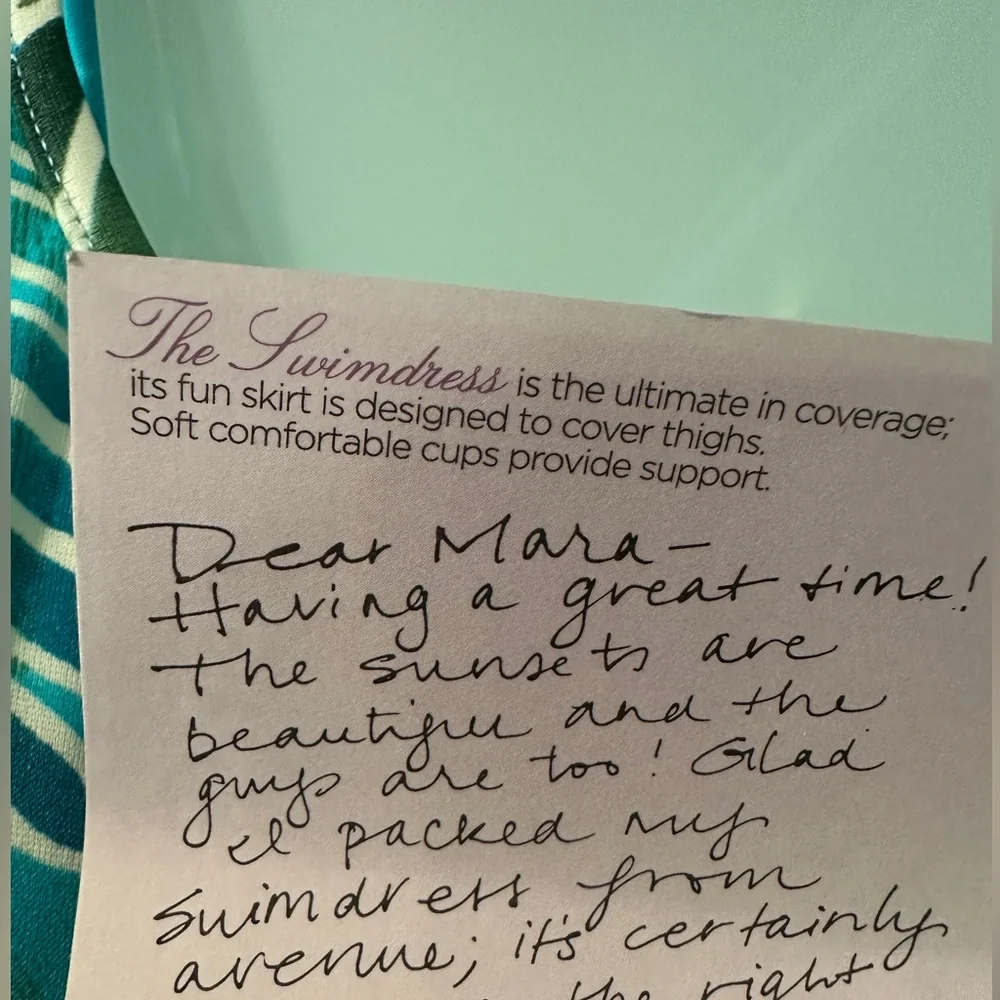 The Swimdress is the ultimate in coverage;
its fun skirt is designed to cover thighs.
Soft comfortable cups provide support.
Dear Mara—
Having a great time!
The sunsets are
beautiful and the
guys are too! Glad
I packed my
swimdress from
avenue; it's certainly
the right